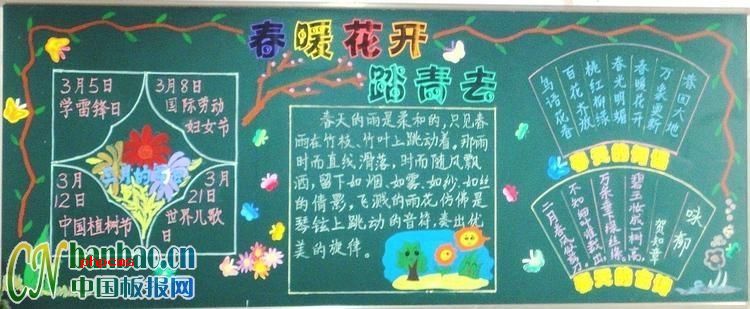 春暖花开
踏青去
3月5日
学雷锋日
3月8日
国际劳动
妇女节
3月
12日
中国植树节
3月
21日
世界儿歌
日
春天的雨是柔和的,只见春
雨在竹枝、竹叶上跳动着。那雨
时而直线滑落,时而随风飘
洒,留下如烟、如雾、如纱、如丝
的倩影,飞溅的雨花仿佛是
琴弦上跳动的音符,奏出优
美的旋律。
春回大地
万象更新
春暖花开,
春光明媚
桃红柳绿
百花齐放
鸟语花香
春天的词语
咏柳
贺知章
碧玉妆成一树高,
万条垂下绿丝绦。
不知细叶谁裁出,
二月春风似剪刀。
春天的古诗
CN banbao.cn
中国板报网